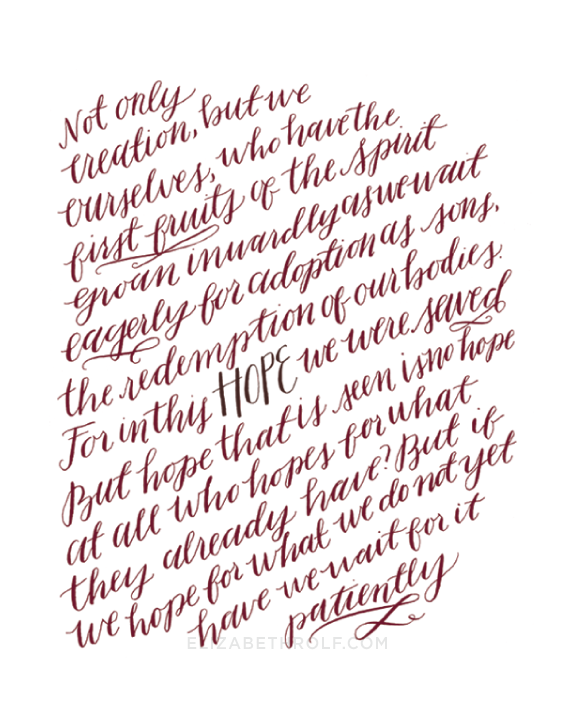 Not only
creation, but we
ourselves, who have the
first fruits of the spirit
groan inwardly as we wait
eagerly for adoption as sons,
the redemption of our bodies.
For in this HOPE we were saved
But hope that is seen is no hope
at all who hopes for what
they already have? But if
we hope for what we do not yet
have we wait for it
patiently
ELIZABETHROLF.COM